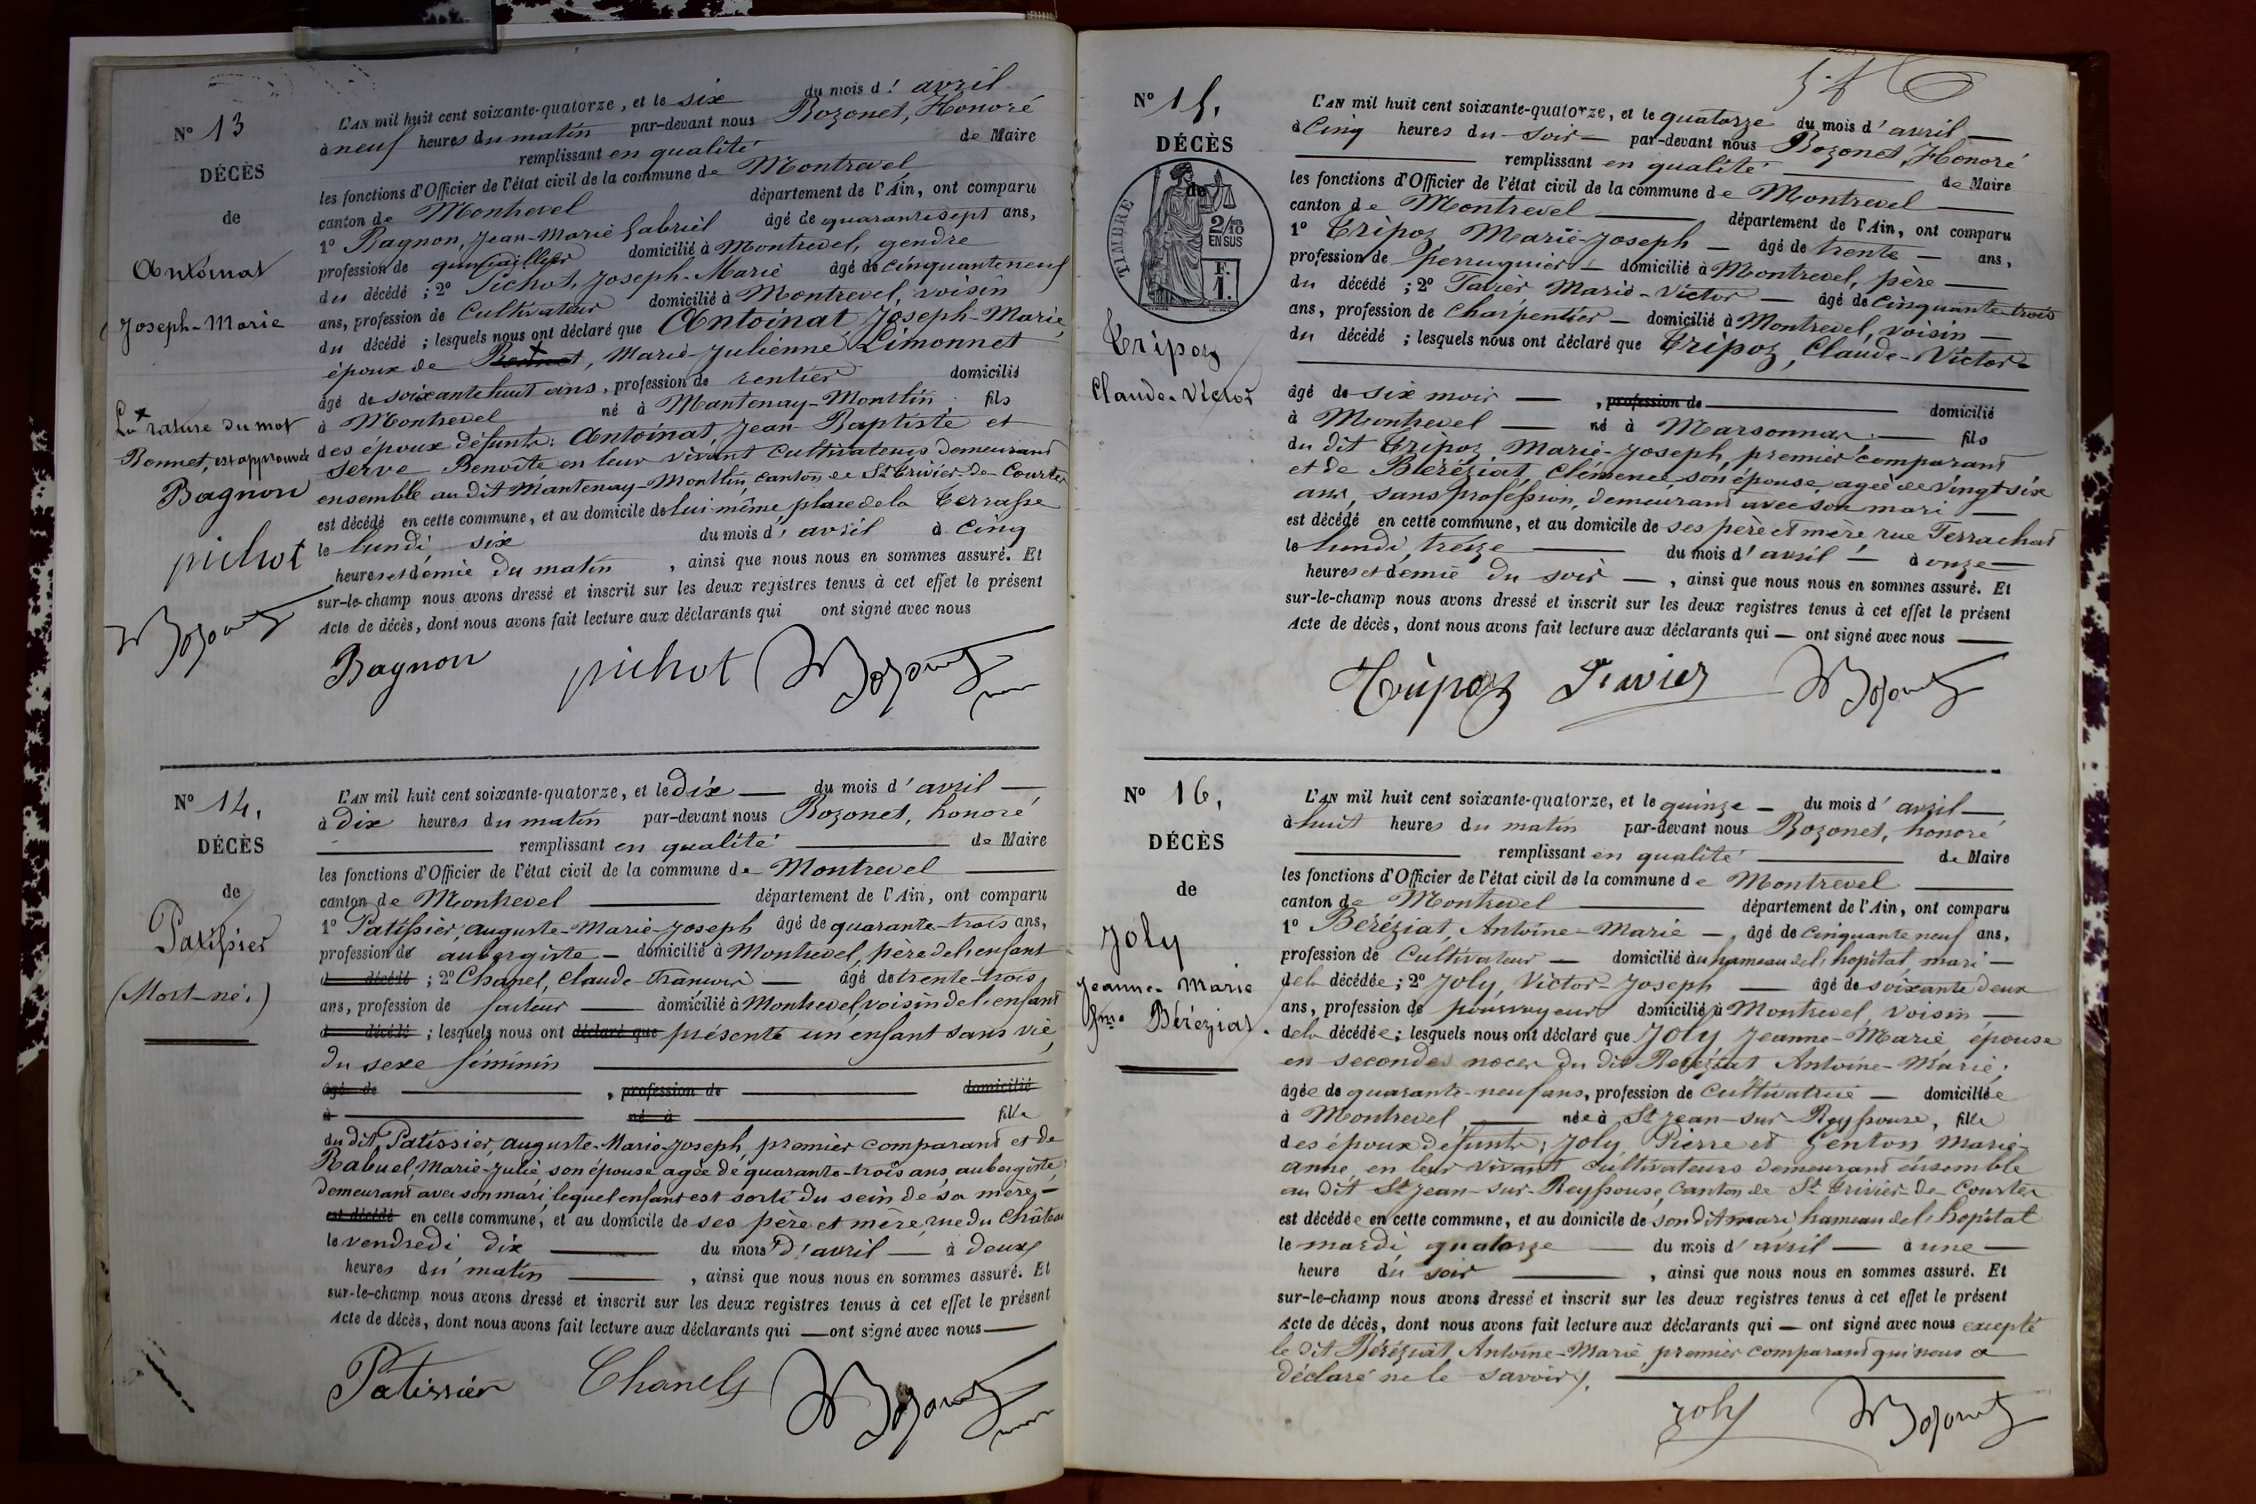 N° 13
DÉCÈS
de
Antoinat
Joseph-Marie
La rature du mot
Bonnet, est approuvée
Bagnon
pichot
L'AN mil huit cent soixante-quatorze, et le six du mois d' avril
à neuf heures du matin par-devant nous Bozonet, Honoré
remplissant en qualité de Maire
les fonctions d'Officier de l'état civil de la commune de Montrevel
canton de Montrevel département de l'Ain, ont comparu
1° Bagnon, Jean-Marie Gabriel âgé de quarante sept ans,
profession de quincaillier domicilié à Montrevel, gendre
du décédé ; 2° Pichot, Joseph-Marie âgé de cinquante neuf
ans, profession de Cultivateur domicilié à Montrevel, voisin
du décédé ; lesquels nous ont déclaré que Antoinat Joseph-Marie,
époux de Bonnet, Marie-Julienne Limonnet
âgé de soixante huit ans, profession de rentier domicilié
à Montrevel né à Mantenay-Montlin fils
des époux défunts : Antoinat, Jean-Baptiste et
Serve Benoîte en leur vivant cultivateurs demeurant
ensemble au dit Mantenay-Montlin, canton de St Trivier-de-Courtes
est décédé en cette commune, et au domicile de lui-même place de la Terrasse
le lundi six du mois d' avril à cinq
heures et demie du matin, ainsi que nous nous en sommes assuré. Et
sur-le-champ nous avons dressé et inscrit sur les deux registres tenus à cet effet le présent
Acte de décès, dont nous avons fait lecture aux déclarants qui ont signé avec nous
Bagnon pichot Bozonet
N° 14.
DÉCÈS
de
Patissier
(Mort-né.)
L'AN mil huit cent soixante-quatorze, et le dix du mois d' avril
à dix heures du matin par-devant nous Bozonet, honoré
remplissant en qualité de Maire
les fonctions d'Officier de l'état civil de la commune de Montrevel
canton de Montrevel département de l'Ain, ont comparu
1° Patissier, Auguste-Marie-Joseph âgé de quarante-trois ans,
profession de aubergiste domicilié à Montrevel, père de l'enfant
d décédé ; 2° Chanel, Claude-François âgé de trente-trois
ans, profession de facteur domicilié à Montrevel, voisin de l'enfant
d décédé ; lesquels nous ont déclaré que présenté un enfant sans vie,
du sexe féminin
âgé de , profession de domicilié
à né à fille
du dit Patissier, Auguste-Marie-Joseph, premier comparant et de
Rabuel, Marie-Julie, son épouse agée de quarante-trois ans, aubergiste
demeurant avec son mari, lequel enfant est sorti du sein de sa mère,
est décédé en cette commune, et au domicile de ses père et mère, rue du Château
le vendredi dix du mois d'avril à deux
heures du matin, ainsi que nous nous en sommes assuré. Et
sur-le-champ nous avons dressé et inscrit sur les deux registres tenus à cet effet le présent
Acte de décès, dont nous avons fait lecture aux déclarants qui ont signé avec nous
Patissier Chanel Bozonet
N° 15.
DÉCÈS
de
TIMBRE
2/10
EN SUS
F.
1.
Tripoz
Claude-Victor
L'AN mil huit cent soixante-quatorze, et le quatorze du mois d' avril
à cinq heures du soir par-devant nous Bozonet, Honoré
remplissant en qualité de Maire
les fonctions d'Officier de l'état civil de la commune de Montrevel
canton de Montrevel département de l'Ain, ont comparu
1° Tripoz Marie-Joseph âgé de trente ans,
profession de perruquier domicilié à Montrevel, père
du décédé ; 2° Tavier Marie-Victor âgé de cinquante-trois
ans, profession de Charpentier domicilié à Montrevel, voisin
du décédé ; lesquels nous ont déclaré que Tripoz, Claude-Victor
âgé de six mois, profession de domicilié
à Montrevel né à Marsonnas fils
du dit Tripoz, Marie-Joseph, premier comparant
et de Béréziat, Clémence, son épouse, agée de vingt-six
ans, sans profession, demeurant avec son mari
est décédé en cette commune, et au domicile de ses père et mère rue Ferrachat
le lundi, treize du mois d' avril à onze
heures et demie du soir, ainsi que nous nous en sommes assuré. Et
sur-le-champ nous avons dressé et inscrit sur les deux registres tenus à cet effet le présent
Acte de décès, dont nous avons fait lecture aux déclarants qui ont signé avec nous
Tripoz Tavier Bozonet
N° 16.
DÉCÈS
de
Joly
Jeanne-Marie
fme Béréziat.
L'AN mil huit cent soixante-quatorze, et le quinze du mois d' avril
à huit heures du matin par-devant nous Bozonet, honoré
remplissant en qualité de Maire
les fonctions d'Officier de l'état civil de la commune de Montrevel
canton de Montrevel département de l'Ain, ont comparu
1° Béréziat, Antoine-Marie, âgé de cinquante neuf ans,
profession de Cultivateur domicilié au hameau de l'hopital mari
de la décédée ; 2° Joly, Victor-Joseph âgé de soixante deux
ans, profession de pourvoyeur domicilié à Montrevel, voisin
de la décédée ; lesquels nous ont déclaré que Joly Jeanne-Marie épouse
en secondes noces du dit Béréziat Antoine-Marie,
âgée de quarante-neuf ans, profession de Cultivatrice domiciliée
à Montrevel, née à St Jean-sur-Reyssouze, fille
des époux défunts, Joly Pierre et Genton Marie-
anne en leur vivant cultivateurs demeurant ensemble
au dit St Jean-sur-Reyssouze, canton de St Trivier-de-Courtes
est décédée en cette commune, et au domicile de son dit mari, hameau de l'hopital
le mardi quatorze du mois d' avril à une
heure du soir, ainsi que nous nous en sommes assuré. Et
sur-le-champ nous avons dressé et inscrit sur les deux registres tenus à cet effet le présent
Acte de décès, dont nous avons fait lecture aux déclarants qui ont signé avec nous excepté
le dit Béréziat Antoine-Marie, premier comparant qui nous a
déclaré ne le savoir.
Joly Bozonet